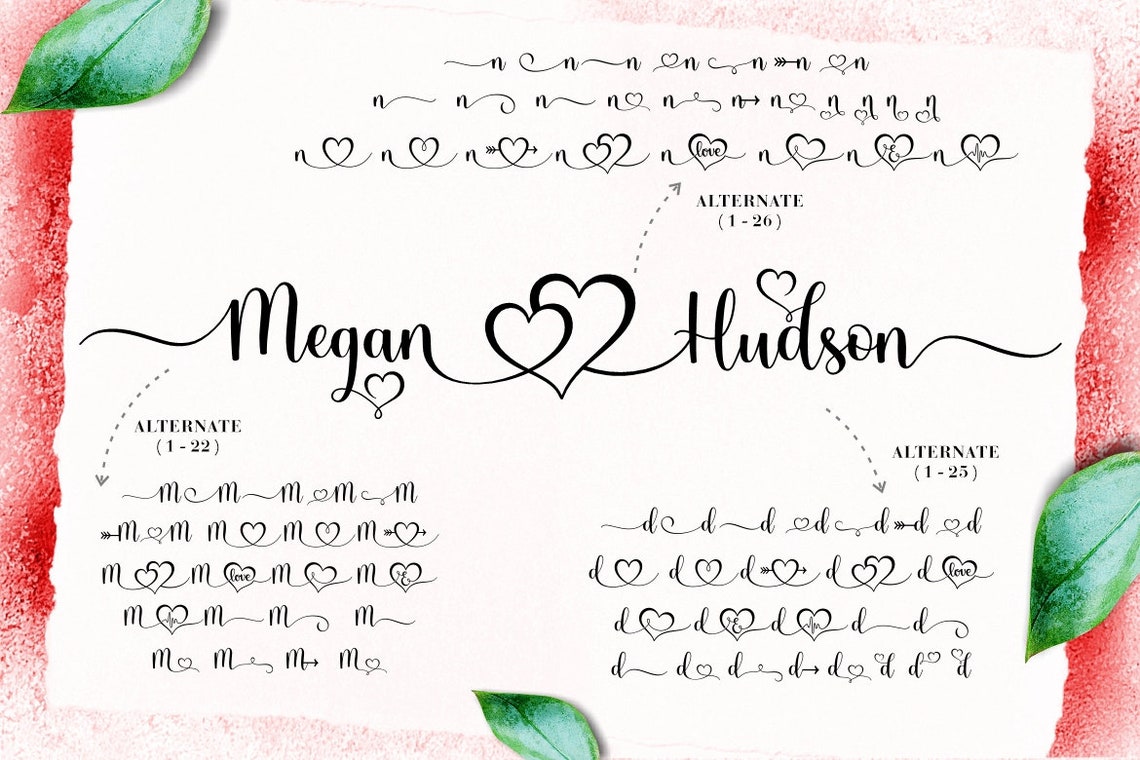 n n n n n n n
n n n n n n n n n n n
n n n n n love n n & n
ALTERNATE
(1 - 26)
Megan Hudson
ALTERNATE
(1 - 22)
M M M M M
M M M M M
M M love M M &
M M M M
M M M M
ALTERNATE
(1 - 25)
d d d d d d d
d d d d d love
d d & d d d
d d d d d d d d